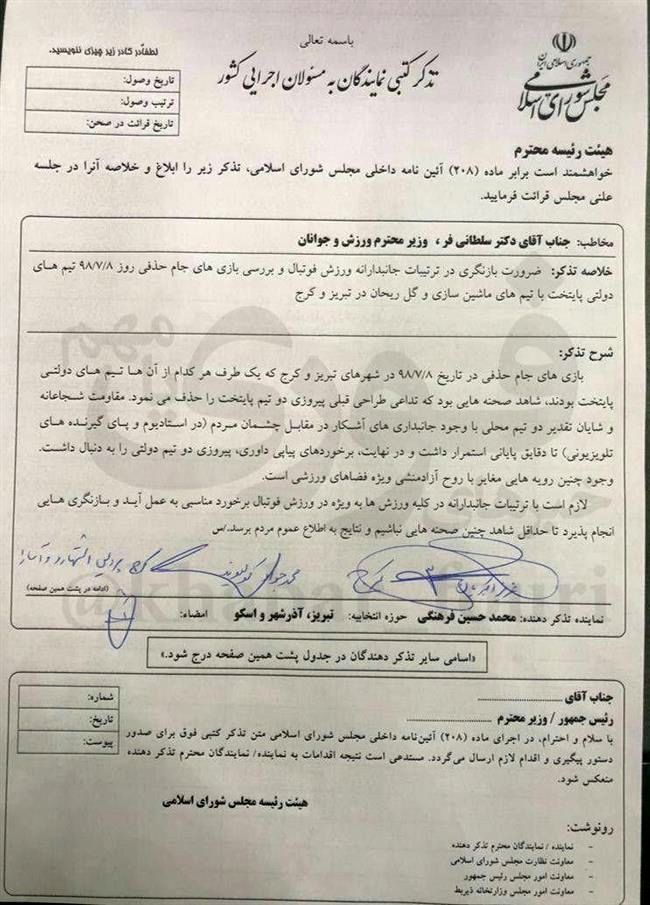 باسمه تعالی
جمهوری اسلامی ایران
مجلس شورای اسلامی
تذکر کتبی نمایندگان به مسئولان اجرایی کشور
لطفاً در کادر زیر چیزی ننویسید.
تاریخ وصول:
ترتیب وصول:
تاریخ قرائت در صحن:
هیئت رئیسه محترم
خواهشمند است برابر ماده (۲۰۸) آئین نامه داخلی مجلس شورای اسلامی، تذکر زیر را ابلاغ و خلاصه آنرا در جلسه
علنی مجلس قرائت فرمایید.
مخاطب: جناب آقای دکتر سلطانی فر ، وزیر محترم ورزش و جوانان
خلاصه تذکر: ضرورت بازنگری در ترتیبات جانبدارانه ورزش فوتبال و بررسی بازی های جام حذفی روز ۹۸/۷/۸ تیم های
دولتی پایتخت با تیم های ماشین سازی و گل ریحان در تبریز و کرج
شرح تذکر:
بازی های جام حذفی در تاریخ ۹۸/۷/۸ در شهرهای تبریز و کرج که یک طرف هر کدام از آن ها تیم های دولتی
پایتخت بودند، شاهد صحنه هایی بود که تداعی طراحی قبلی پیروزی دو تیم پایتخت را حذف می نمود. مقاومت شجاعانه
و شایان تقدیر دو تیم محلی با وجود جانبداری های آشکار در مقابل چشمان مردم (در استادیوم و پای گیرنده های
تلویزیونی) تا دقایق پایانی استمرار داشت و در نهایت، برخوردهای پیاپی داوری، پیروزی دو تیم دولتی را به دنبال داشت.
وجود چنین رویه هایی مغایر با روح آزادمنشی ویژه فضاهای ورزشی است.
لازم است با ترتیبات جانبدارانه در کلیه ورزش ها به ویژه در ورزش فوتبال برخورد مناسبی به عمل آید و بازنگری هایی
انجام پذیرد تا حداقل شاهد چنین صحنه هایی نباشیم و نتایج به اطلاع عموم مردم برسد./س
محمدجواد کولیوند کرج
(ادامه در پشت همین صفحه)
نماینده تذکر دهنده: محمد حسین فرهنگی حوزه انتخابیه: تبریز، آذرشهر و اسکو امضاء:
«اسامی سایر تذکر دهندگان در جدول پشت همین صفحه درج شود.»
جناب آقای ........................
رئیس جمهور / وزیر محترم ........................
شماره:
تاریخ:
پیوست:
با سلام و احترام، در اجرای ماده (۲۰۸) آئین‌نامه داخلی مجلس شورای اسلامی متن تذکر کتبی فوق برای صدور
دستور پیگیری و اقدام لازم ارسال می‌گردد. مستدعی است نتیجه اقدامات به نماینده/ نمایندگان محترم تذکر دهنده
منعکس شود.
هیئت رئیسه مجلس شورای اسلامی
رونوشت:
- نماینده / نمایندگان محترم تذکر دهنده
- معاونت نظارت مجلس شورای اسلامی
- معاونت امور مجلس رئیس جمهور
- معاونت امور مجلس وزارتخانه ذیربط